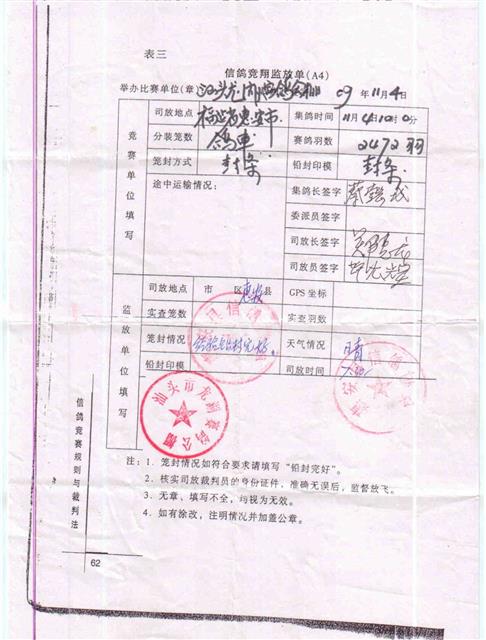 表三
信鸽竞翔监放单(A4)
举办比赛单位(章 09年11月4日
竞赛单位填写
司放地点 福建省惠安市 集鸽时间 11月4日10时0分
分装笼数 鸽车 赛鸽羽数 2472羽
笼封方式 封条 铅封印模 封条
途中运输情况: 集鸽长签字
委派员签字
司放长签字
司放员签字
监放单位填写
司放地点 市 区 惠安县 GPS坐标
实查笼数 实查羽数
笼封情况 天气情况 晴
铅封印模 司放时间
汕头市龙湖赛鸽公棚
注:1.笼封情况如符合要求请填写“铅封完好”。
2.核实司放裁判员的身份证件,准确无误后,监督放飞。
3.无章、填写不全,均视为无效。
4.如有涂改,注明情况并加盖公章。
信鸽竞赛规则与裁判法
62